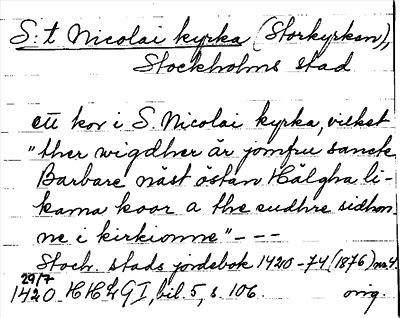 S:t Nicolai kyrka (Storkyrkan),
Stockholms stad
ett kor i S. Nicolai kyrka, vilket
"ther wigdher är jomfru sancte
Barbare näst östan Hälgha li-
kama koor a the eudhre sidhon-
ne i kirkionne" - - -
Stoch. stads jordebok 1420-74 (1876) nr 4.
29/7
1420 HHLG I, bil. 5, s. 106. orig.